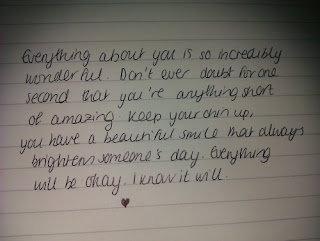 Everything about you is so incredibly
wonderful. Don't ever doubt for one
second that you're anything short
of amazing. Keep your chin up,
you have a beautiful smile that always
brightens someone's day. Everything
will be okay. I know it will.
♥